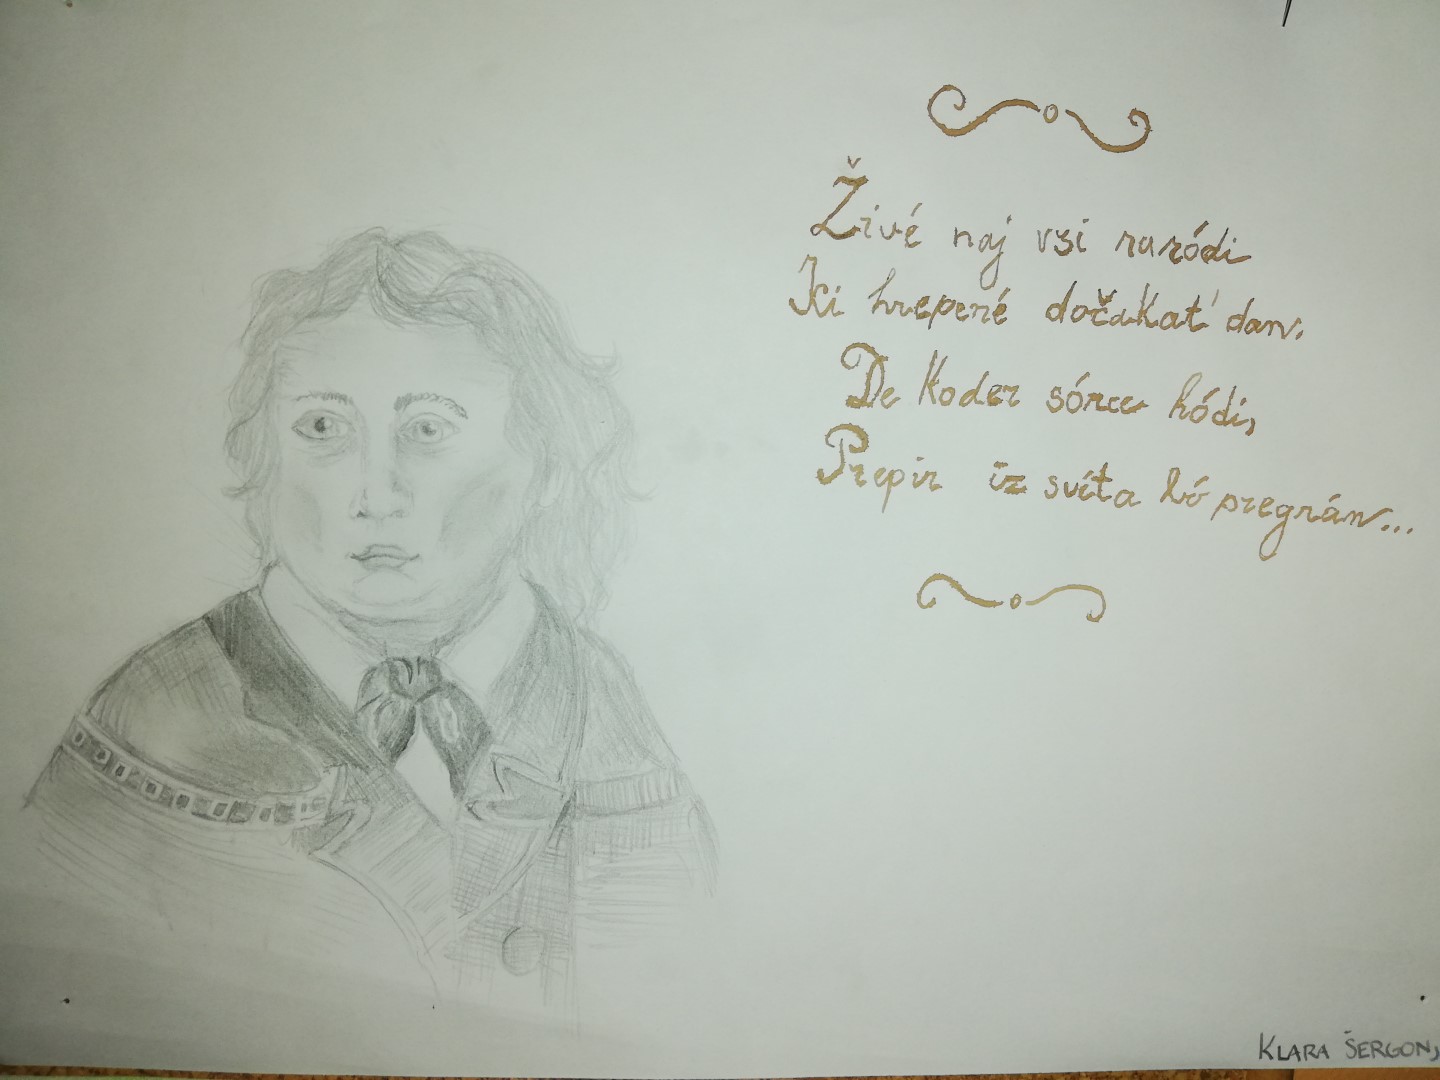 Živé naj vsi naródi
Ki hrepené dočakat' dan,
De koder sónce hódi,
Prepir iz svéta bó pregnán...
KLARA ŠERGON,